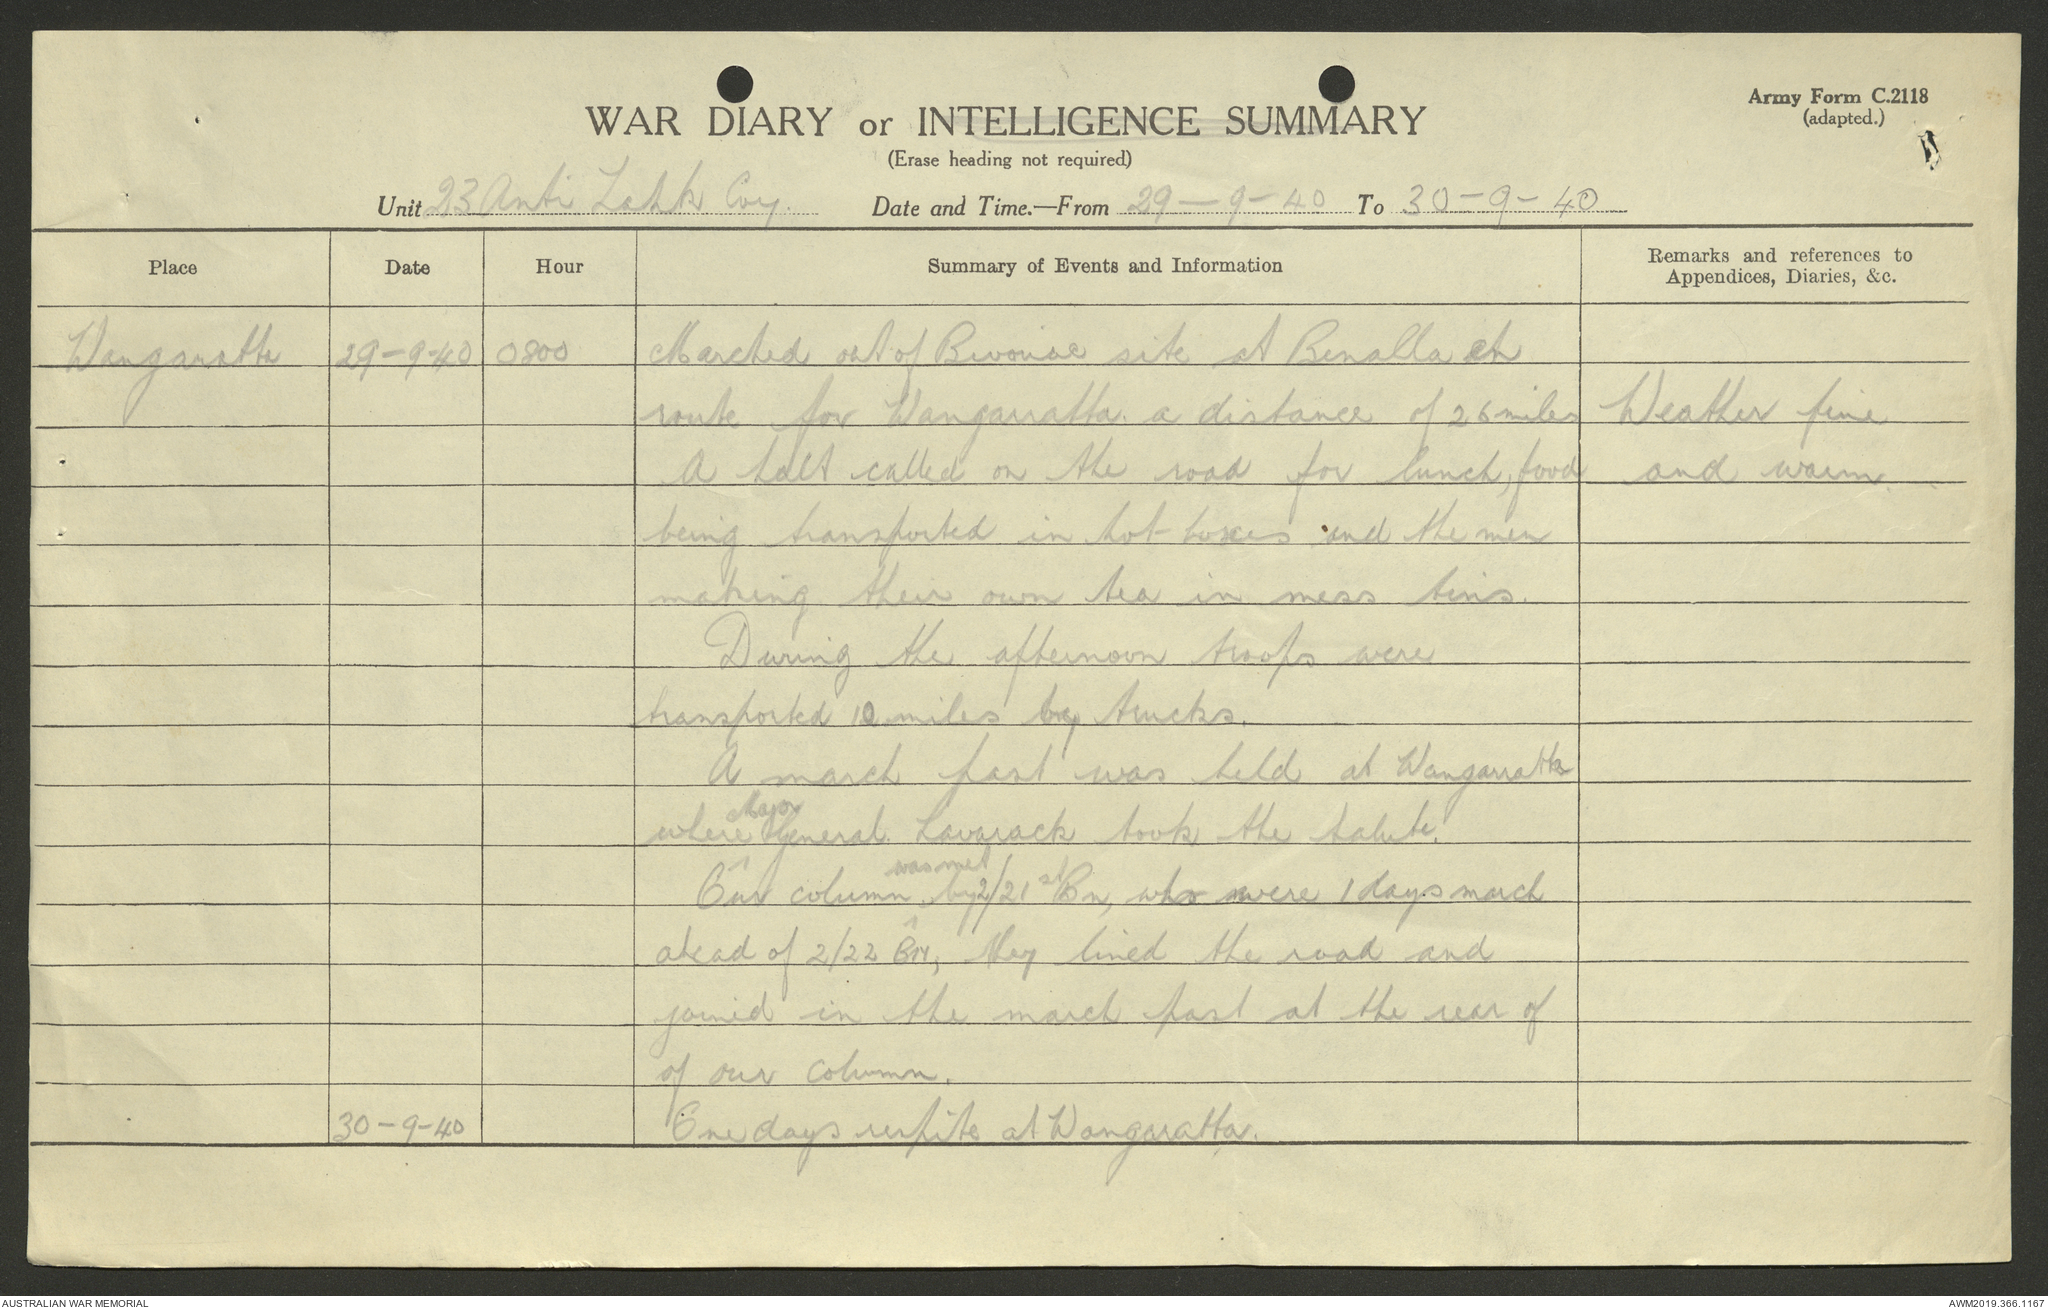 Army Form C.2118
(adapted.)
WAR DIARY or INTELLIGENCE SUMMARY
(Erase heading not required)
Unit 23 Anti Tank Coy. Date and Time.—From 29-9-40 To 30-9-40
Place Date Hour Summary of Events and Information Remarks and references to
Appendices, Diaries, &c.
Wangaratta 29-9-40 0800 Marched out of Bivouac site at Benalla en
route for Wangarratta. a distance of 26 miles Weather fine
A halt called on the road for lunch, food and warm.
being transported in hot-boxes and the men
making their own tea in mess tins.
During the afternoon troops were
transported 10 miles by trucks.
A march past was held at Wangarratta
where Major General Lavarack took the salute.
Our column was met by 2/21st Bn, who were 1 days march
ahead of 2/22 Bn, they lined the road and
joined in the march past at the rear of
of our column.
30-9-40 One days respite at Wangaratta.
AUSTRALIAN WAR MEMORIAL AWM2019.366.1167